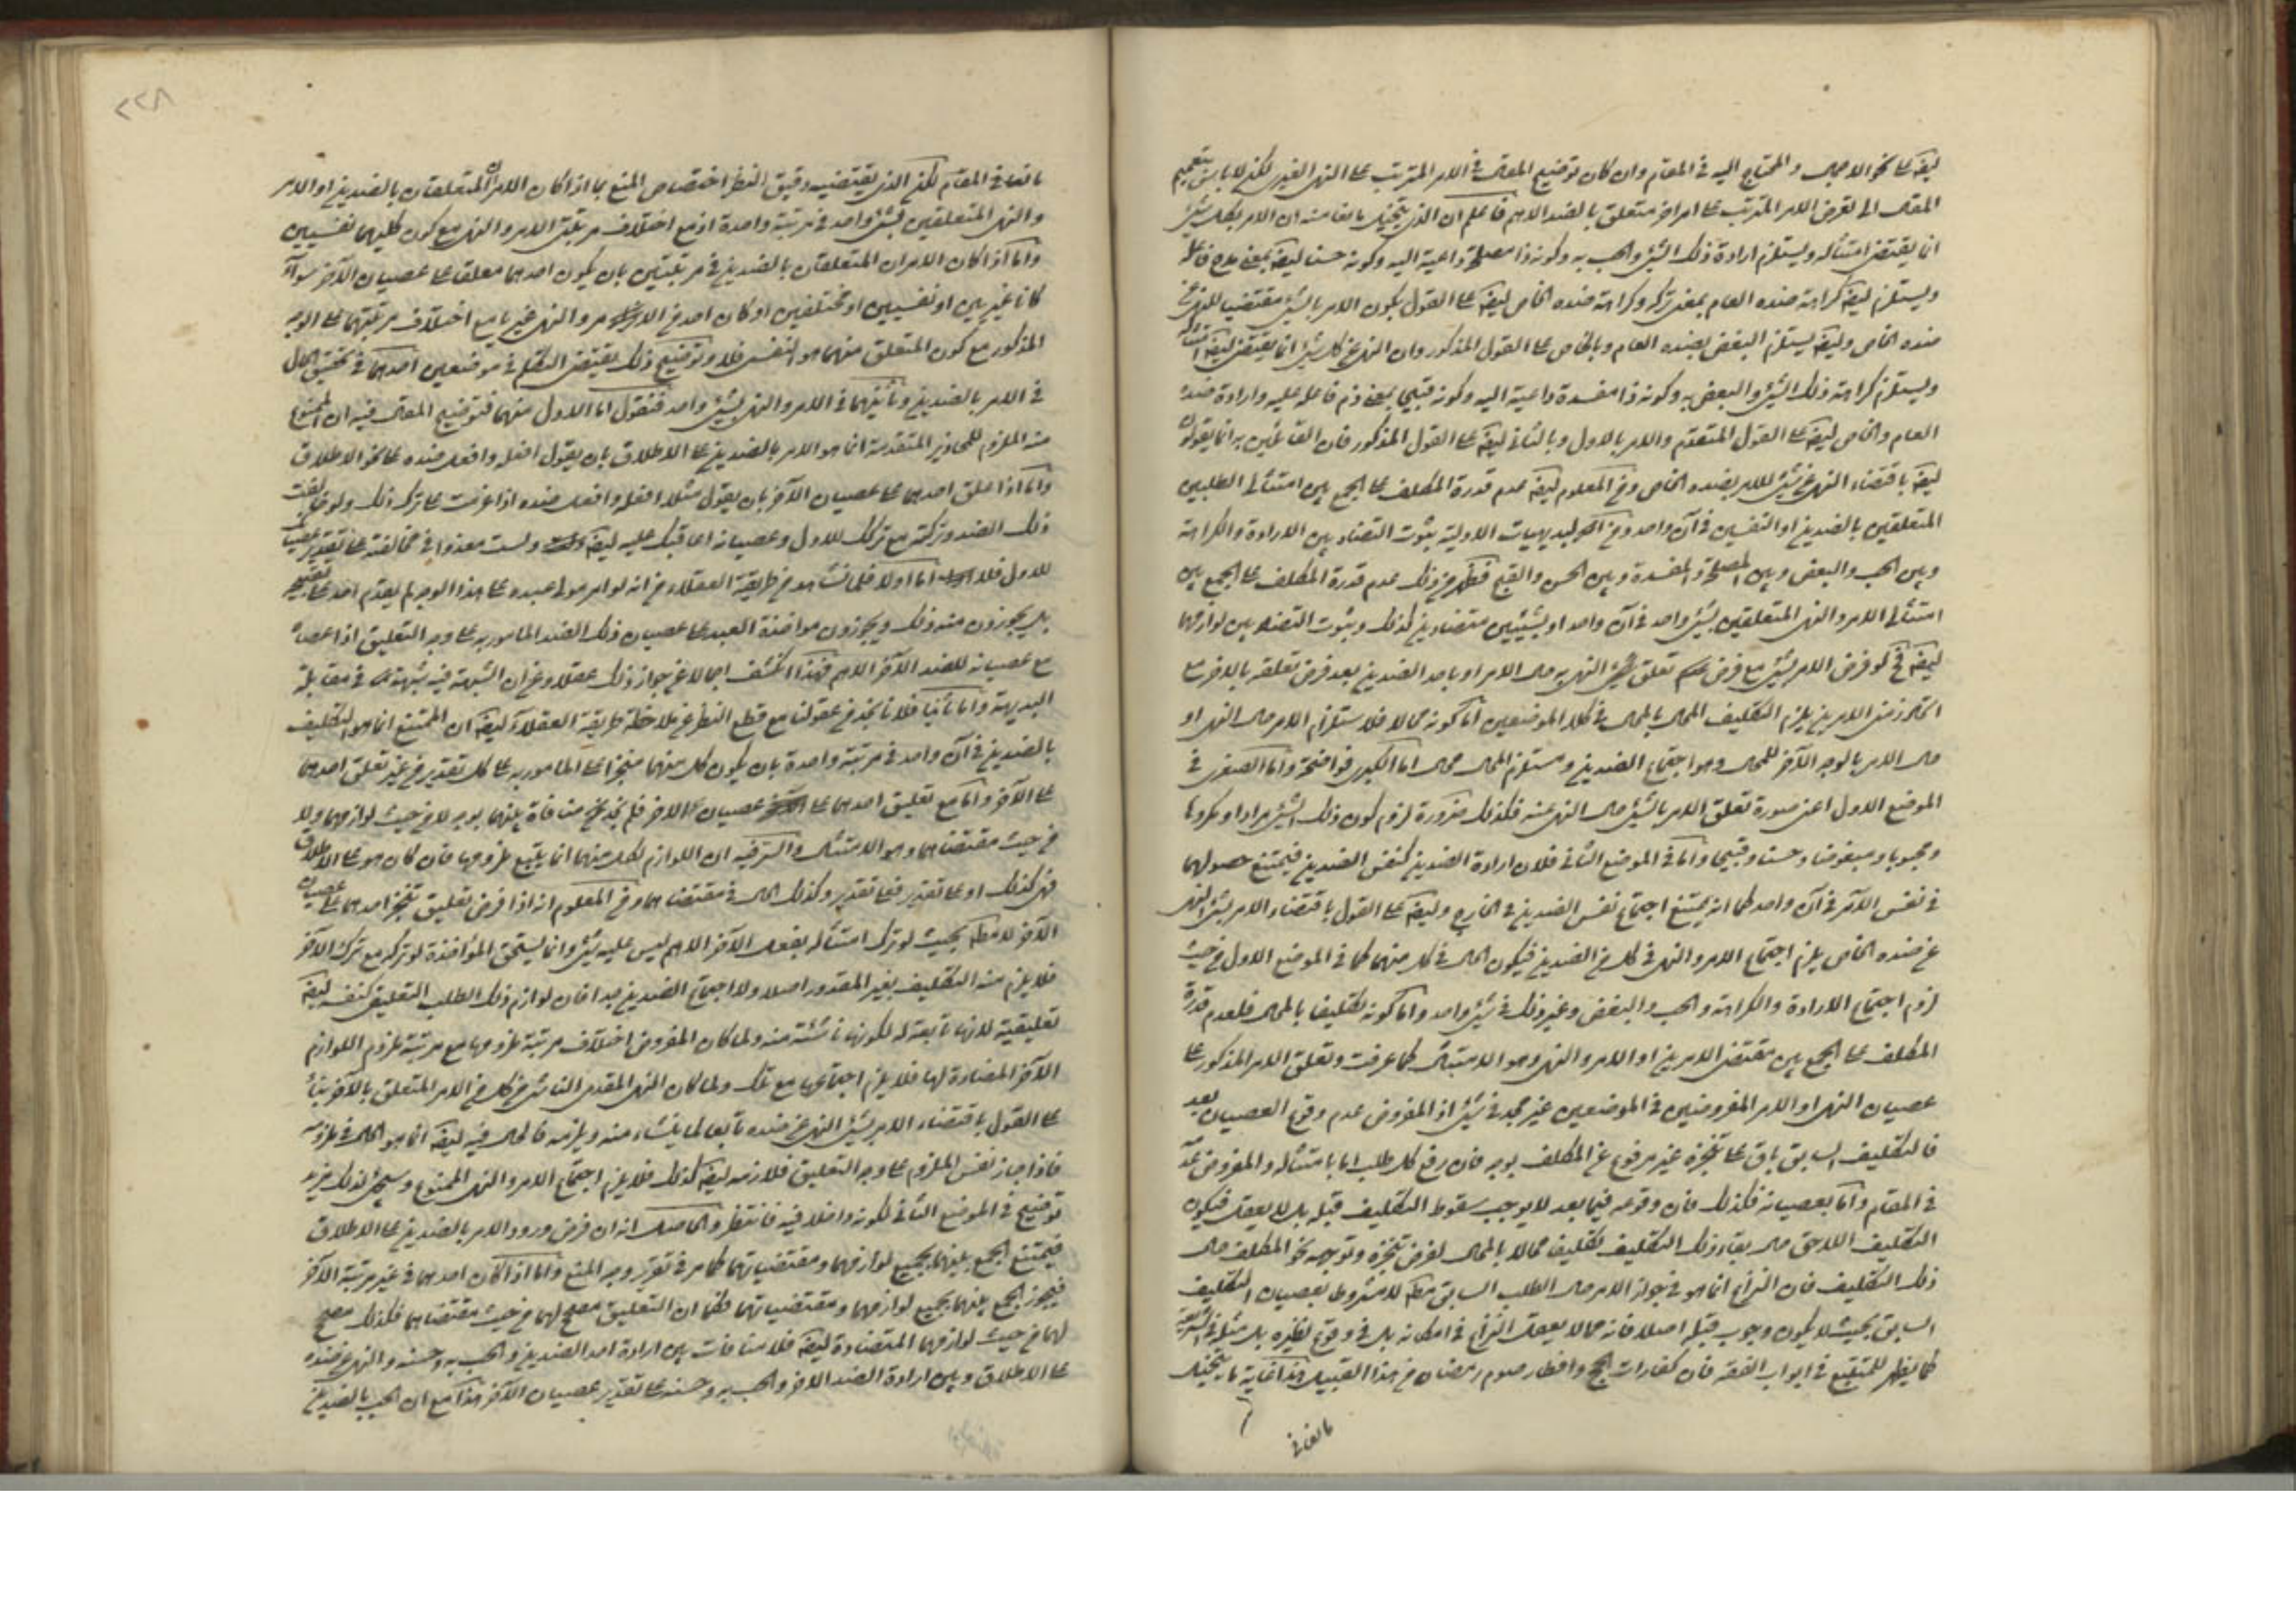 ايضا على نحو الاجمال والمحتاج اليه في المقام وان كان توضيح المقال في الامر المترتب على النهي الغيري لكن لا بأس بتعميم
المقال الى لغرض الامر المترتب على امر آخر متعلق بالضد الاهم فاعلم ان الذي يتخيل مانعا منه ان الامر بكل شيئ
انما يقتضي امتثاله ويستلزم ارادة ذلك الشيئ والحب به وكونه ذا مصلحة داعية اليه وكونه حسنا ايضا بمعنى مدح فاعله
ويستلزم ايضا كراهة ضده العام بمعنى تركه وكراهة ضده الخاص ايضا على القول بكون الامر بالشيئ مقتضيا للنهي عن
ضده الخاص وايضا يستلزم البغض بضده العام وبالخاص على القول المذكور وان النهي عن كل شيئ انما يقتضي ايضا امتثاله
ويستلزم كراهة ذلك الشيئ والبغض به وكونه ذا مفسدة داعية اليه وكونه قبيحا بمعنى ذم فاعله عليه وارادة ضده
العام والخاص ايضا على القول المتقدم والامر بالاول وبالثاني ايضا على القول المذكور فان القائلين به انما يقولون
ايضا باقتضاء النهي عن شيئ للامر بضده الخاص ومن المعلوم ايضا عدم قدرة المكلف على الجمع بين امتثالي الطلبين
المتعلقين بالضدين او النقيضين في آن واحد ومن البديهيات الاولية ثبوت التضاد بين الارادة والكراهة
وبين الحب والبغض وبين المصلحة والمفسدة وبين الحسن والقبح فظهر من ذلك عدم قدرة المكلف على الجمع بين
امتثالي الامر والنهي المتعلقين بشيئ واحد في آن واحد او بشيئين متضادين كذلك وثبوت التضاد بين لوازمهما
ايضا فح لو فرض الامر بشيئ مع فرض تعلق النهي به حال الامر او باحد الضدين بعد فرض تعلقه بالآخر مع
اتحاد زمني الامرين يلزم التكليف المحال بالمحال في كلا الموضعين اما كونه محالا فلاستلزام الامر حال النهي او
حال الامر بالوجه الآخر للمحال وهو اجتماع الضدين ومستلزم المحال محال اما الكبرى فواضحة واما الصغرى في
الموضع الاول اعني صورة تعلق الامر بالشيئ حال النهي عنه فكذلك ضرورة لزوم كون ذلك الشيئ مرادا ومكروها
ومحبوبا ومبغوضا وحسنا وقبيحا واما في الموضع الثاني فلان ارادة الضدين كنفس الضدين فيمتنع حصولهما
في نفس الآمر في آن واحد كما انه يمتنع اجتماع نفس الضدين في الخارج وايضا على القول باقتضاء الامر بشيئ النهي
عن ضده الخاص يلزم اجتماع الامر والنهي في كل من الضدين فيكون الحال في كل منهما كما في الموضع الاول من حيث
لزوم اجتماع الارادة والكراهة والحب والبغض وغير ذلك في شيئ واحد واما كونه تكليفا بالمحال فلعدم قدرة
المكلف على الجمع بين مقتضى الامرين او الامر والنهي وهو الامتثال كما عرفت وتعلق الامر المذكور على
عصيان النهي او الامر المفروضين في الموضعين غير مجد في شيئ اذ المفروض عدم وقوع العصيان بعد
فالتكليف السابق باق على تنجزه غير مرفوع عن المكلف بوجه فان رفع كل طلب اما بامتثاله والمفروض عدمه
في المقام واما بعصيانه فكذلك فان وقوعه فيما بعد لا يوجب سقوط التكليف قبله بل لا يعقل فيكون
التكليف اللاحق حال بقاء ذلك التكليف تكليفا محالا بالمحال لفرض تنجزه وتوجهه نحو المكلف حال
ذلك التكليف فان النزاع انما هو في جواز الامر حال الطلب السابق مطلقا لا مشروطا بعصيان التكليف
السابق بحيث لا يكون وجوب قبله اصلا فانه مما لا يعقل النزاع في امكانه بل في وقوع نظيره بل مثله في الشرعيات
كما يظهر للمتتبع في ابواب الفقه فان كفارات الحج وافطار صوم رمضان من هذا القبيل هذا غاية ما يتخيل
مانعا في
٢٢٨
مانعا في المقام لكن الذي يقتضيه دقيق النظر اختصاص المنع بما اذا كان الامران المتعلقان بالضدين او الامر
والنهي المتعلقين بشيئ واحد في مرتبة واحدة او مع اختلاف مرتبتي الامر والنهي مع كون كليهما نفسيين
واما اذا كان الامران المتعلقان بالضدين في مرتبتين بان يكون احدهما معلقا على عصيان الآخر سواء
كانا غيريين او نفسيين او مختلفين او كان احد من الامر والنهي غيريا مع اختلاف مرتبتهما على الوجه
المذكور مع كون المتعلق منهما هو النفسي فلا وتوضيح ذلك يقتضي التكلم في موضعين احدهما في تحقيق الحال
في الامر بالضدين وثانيهما في الامر والنهي بشيئ واحد فنقول اما الاول منهما فتوضيح المقال فيه ان الممنوع
منه الملزم للمحاذير المتقدمة انما هو الامر بالضدين على الاطلاق بان يقول افعله وافعل ضده على نحو الاطلاق
واما اذا علق احدهما على عصيان الآخر بان يقول مثلا افعله وافعل ضده اذا عزمت على ترك ذلك ولو خالفت
ذلك الضد وتركته مع تركك للاول وعصيانه اعاقبك عليه ايضا ولست معذورا في مخالفته على تقدير عصيانك
للاول فلا اما اولا فلما نشاهد من طريقة العقلاء من انه لو امر مولى عبده على هذا الوجه لم يقدم احد على تقبيحه
بل يجوزون منه ذلك ويجوزون مؤاخذة العبد على عصيان ذلك الضد المامور به على وجه التعليق اذا عصاه
مع عصيانه للضد الآخر الاهم فهذا انكشف اجمالا عن جواز ذلك عقلا وعن ان الشبهة فيه شبهة في مقابلة
البديهة واما ثانيا فلانا نجد من عقولنا مع قطع النظر عن ملاحظة طريقة العقلاء ايضا ان الممتنع انما هو التكليف
بالضدين في آن واحد في مرتبة واحدة بان يكون كل منهما منجزا على المامور به على كل تقدير من غير تعلق احدهما
على الآخر واما مع تعليق احدهما على عصيان الآخر فلم نجد من منافاة بينهما بوجه لا من حيث لوازمهما ولا
من حيث مقتضاهما وهو الامتثال والسر فيه ان اللوازم لكل منهما انما يتبع ملزومها فان كان هو على الاطلاق
فهي كذلك او على تقدير فعلى تقدير وكذلك الحال في مقتضاهما ومن المعلوم انه اذا فرض تعليق تنجز احدهما على عصيان
الآخر لا مطلقا بحيث لو ترك امتثاله بفعل الآخر الاهم ليس عليه شيئ وانما يستحق المؤاخذة لو تركه مع ترك الآخر
فلا يلزم منه التكليف بغير المقدور اصلا ولا اجتماع الضدين جدا فان لوازم ذلك الطلب التعليقي كنفسه ايضا
تعليقية لانها تابعة له لكونها ناشئة منه ولما كان المفروض اختلاف مرتبة ملزومها مع مرتبة ملزوم اللوازم
الآخر المضادة لها فلا يلزم اجتماعها مع تلك ولما كان النهي المقدمي الناشئ من كل من الامر المتعلق بالآخر بناء
على القول باقتضاء الامر بشيئ النهي عن ضده تابعا لما ينشاء منه ويلزمه فالحال فيه ايضا انما هو الحال في ملزومه
فاذا جاز نفس الملزوم على وجه التعليق فلازمه ايضا كذلك فلا يلزم اجتماع الامر والنهي الممنوع وسيجيئ لذلك مزيد
توضيح في الموضع الثاني لكونه داخلا فيه فانتظر والحاصل انه ان فرض ورود الامر بالضدين على الاطلاق
فيمتنع الجمع بينهما بجميع لوازمهما ومقتضياتهما كما مر في تقرير وجه المنع واما اذا كان احدهما في غير مرتبة الآخر
فيجوز الجمع بينهما بجميع لوازمهما ومقتضياتهما فكما ان التعليق مصحح لهما من حيث مقتضاهما فكذلك مصحح
لهما من حيث لوازمهما المتضادة ايضا فلا منافات بين ارادة احد الضدين والحب به وحسنه والنهي عن ضده
على الاطلاق وبين ارادة الضد الآخر والحب به وحسنه على تقدير عصيان الآخر هذا مع ان الحب بالضدين